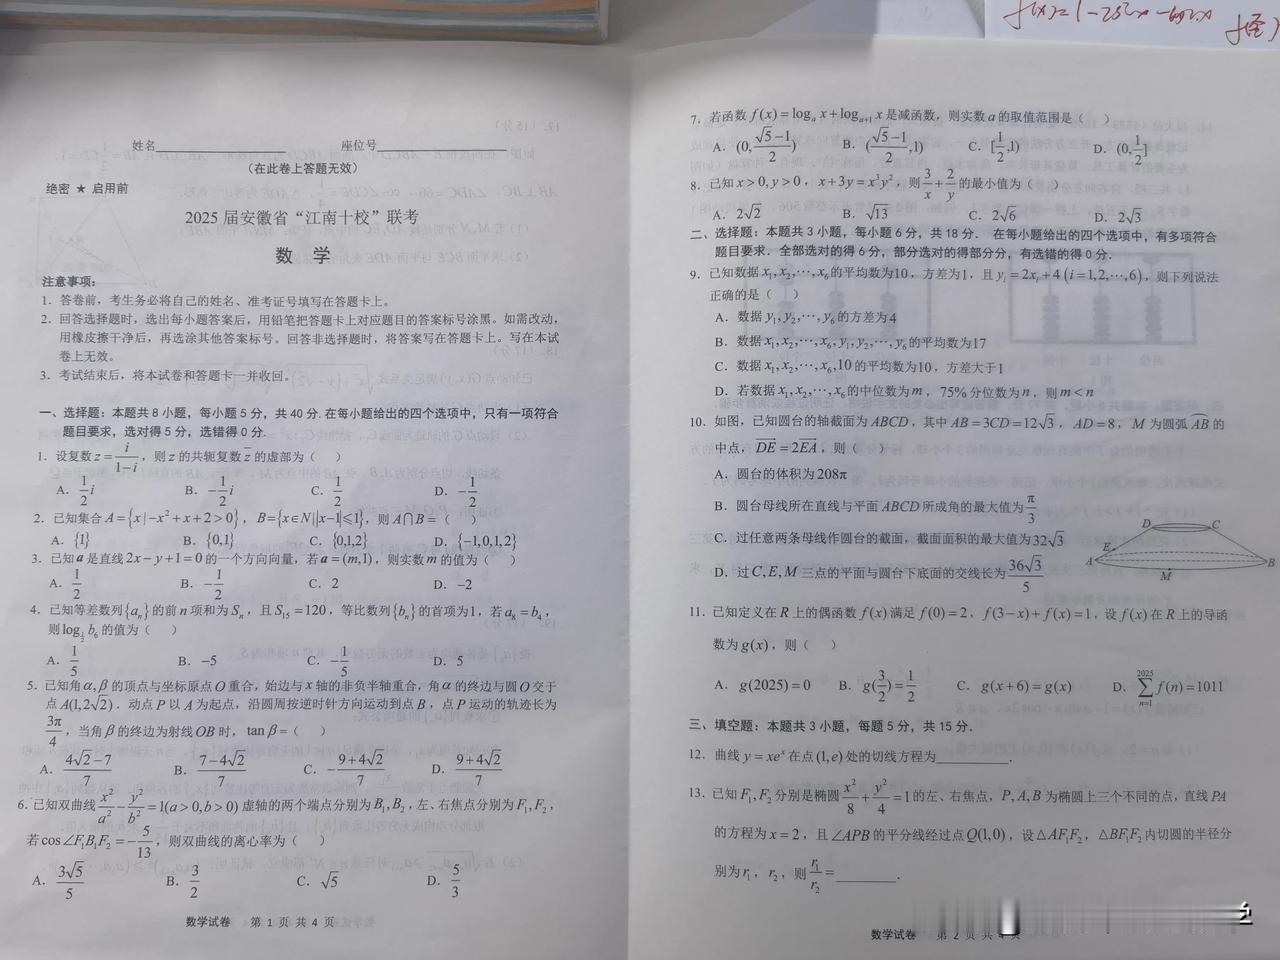 f(x)=1-2
姓名 座位号
(在此卷上答题无效)
绝密 ★ 启用前
2025 届安徽省“江南十校”联考
数 学
注意事项:
1. 答卷前,考生务必将自己的姓名、准考证号填写在答题卡上。
2. 回答选择题时,选出每小题答案后,用铅笔把答题卡上对应题目的答案标号涂黑。如需改动,
用橡皮擦干净后,再选涂其他答案标号。回答非选择题时,将答案写在答题卡上。写在本试
卷上无效。
3. 考试结束后,将本试卷和答题卡一并收回。
一、选择题:本题共 8 小题,每小题 5 分,共 40 分.在每小题给出的四个选项中,只有一项符合
题目要求,选对得 5 分,选错得 0 分.
1. 设复数 z = i/(1-i),则 z 的共轭复数 z̄ 的虚部为( )
A. 1/2 i B. -1/2 i C. 1/2 D. -1/2
2. 已知集合 A={x|-x²+x+2>0},B={x∈N||x-1|≤1},则 A∩B=( )
A. {1} B. {0,1} C. {0,1,2} D. {-1,0,1,2}
3. 已知 a 是直线 2x-y+1=0 的一个方向向量,若 a=(m,1),则实数 m 的值为( )
A. 1/2 B. -1/2 C. 2 D. -2
4. 已知等差数列{aₙ}的前 n 项和为 Sₙ,且 S₁₅=120,等比数列{bₙ}的首项为1,若 a₈=b₄,
则 log_{1/2} b₆ 的值为( )
A. 1/5 B. -5 C. -1/5 D. 5
5. 已知角 α,β 的顶点与坐标原点 O 重合,始边与 x 轴的非负半轴重合,角 α 的终边与圆 O 交于
点 A(1,2√2).动点 P 以 A 为起点,沿圆周按逆时针方向运动到点 B,点 P 运动的轨迹长为
3π/4,当角 β 的终边为射线 OB 时,tan β=( )
A. (4√2-7)/7 B. (7-4√2)/7 C. -(9+4√2)/7 D. (9+4√2)/7
6. 已知双曲线 x²/a²-y²/b²=1(a>0,b>0) 虚轴的两个端点分别为 B₁,B₂,左、右焦点分别为 F₁,F₂,
若 cos∠F₁B₁F₂=-5/13,则双曲线的离心率为( )
A. 3√5/5 B. 3/2 C. √5 D. 5/3
数学试卷 第 1 页 共 4 页
7. 若函数 f(x)=logₐ x+log_{a+1} x 是减函数,则实数 a 的取值范围是( )
A. (0,(√5-1)/2) B. ((√5-1)/2,1) C. [1/2,1) D. (0,1/2]
8. 已知 x>0,y>0,x+3y=x³y²,则 3/x+2/y 的最小值为( )
A. 2√2 B. √13 C. 2√6 D. 2√3
二、选择题:本题共 3 小题,每小题 6 分,共 18 分. 在每小题给出的四个选项中,有多项符合
题目要求. 全部选对的得 6 分,部分选对的得部分分,有选错的得 0 分.
9. 已知数据 x₁,x₂,⋯,x₆ 的平均数为10,方差为1,且 yᵢ=2xᵢ+4(i=1,2,⋯,6),则下列说法
正确的是( )
A. 数据 y₁,y₂,⋯,y₆ 的方差为4
B. 数据 x₁,x₂,⋯,x₆,y₁,y₂,⋯,y₆ 的平均数为17
C. 数据 x₁,x₂,⋯,x₆,10 的平均数为10,方差大于1
D. 若数据 x₁,x₂,⋯,x₆ 的中位数为 m,75% 分位数为 n,则 m<n
10. 如图,已知圆台的轴截面为 ABCD,其中 AB=3CD=12√3,AD=8,M 为圆弧 AB 的
中点,DE=2EA,则( )
A. 圆台的体积为 208π
B. 圆台母线所在直线与平面 ABCD 所成角的最大值为 π/3
C. 过任意两条母线作圆台的截面,截面面积的最大值为 32√3
D. 过 C,E,M 三点的平面与圆台下底面的交线长为 36√3/5
D C
E
A B
M
11. 已知定义在 R 上的偶函数 f(x) 满足 f(0)=2,f(3-x)+f(x)=1,设 f(x) 在 R 上的导函
数为 g(x),则( )
A. g(2025)=0 B. g(3/2)=1/2 C. g(x+6)=g(x) D. ∑_{n=1}^{2025} f(n)=1011
三、填空题:本题共 3 小题,每题 5 分,共 15 分.
12. 曲线 y=xeˣ 在点 (1,e) 处的切线方程为________.
13. 已知 F₁,F₂ 分别是椭圆 x²/8+y²/4=1 的左、右焦点,P,A,B 为椭圆上三个不同的点,直线 PA
的方程为 x=2,且∠APB 的平分线经过点 Q(1,0),设 △AF₁F₂,△BF₁F₂ 内切圆的半径分
别为 r₁,r₂,则 r₁/r₂=________.
数学试卷 第 2 页 共 4 页